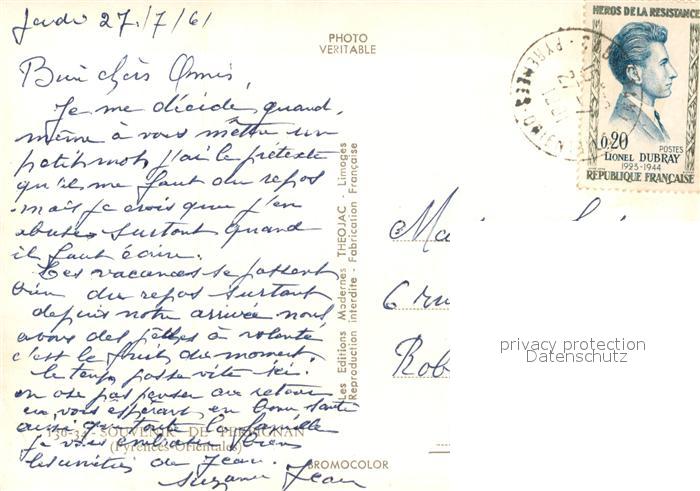 Jeudi 27/7/61
PHOTO
VERITABLE
Bien chers Amis,
Je me décide quand
même à vous mettre un
petit mot, j'ai le prétexte
qu'il me faut du repos
mais je crois que j'en
abuse surtout quand
il faut écrire.
Les vacances se passent
bien du repos surtout
depuis notre arrivée nous
avons des pêches à volonté
c'est le fruit du moment.
le temps passe vite ici.
on ose pas penser au retour
en vous espérant en bonne santé
ainsi que toute la famille
je vous embrasse
de Jean.
Suzanne Jean
130-34 - SOUVENIR DE PERPIGNAN
(Pyrénées-Orientales)
BROMOCOLOR
Les Editions Modernes THEOJAC - Limoges
Reproduction interdite - Fabrication Française
HEROS DE LA RESISTANCE
0,20
POSTES
LIONEL DUBRAY
1923-1944
REPUBLIQUE FRANÇAISE
6 rue
Rob
privacy protection
Datenschutz